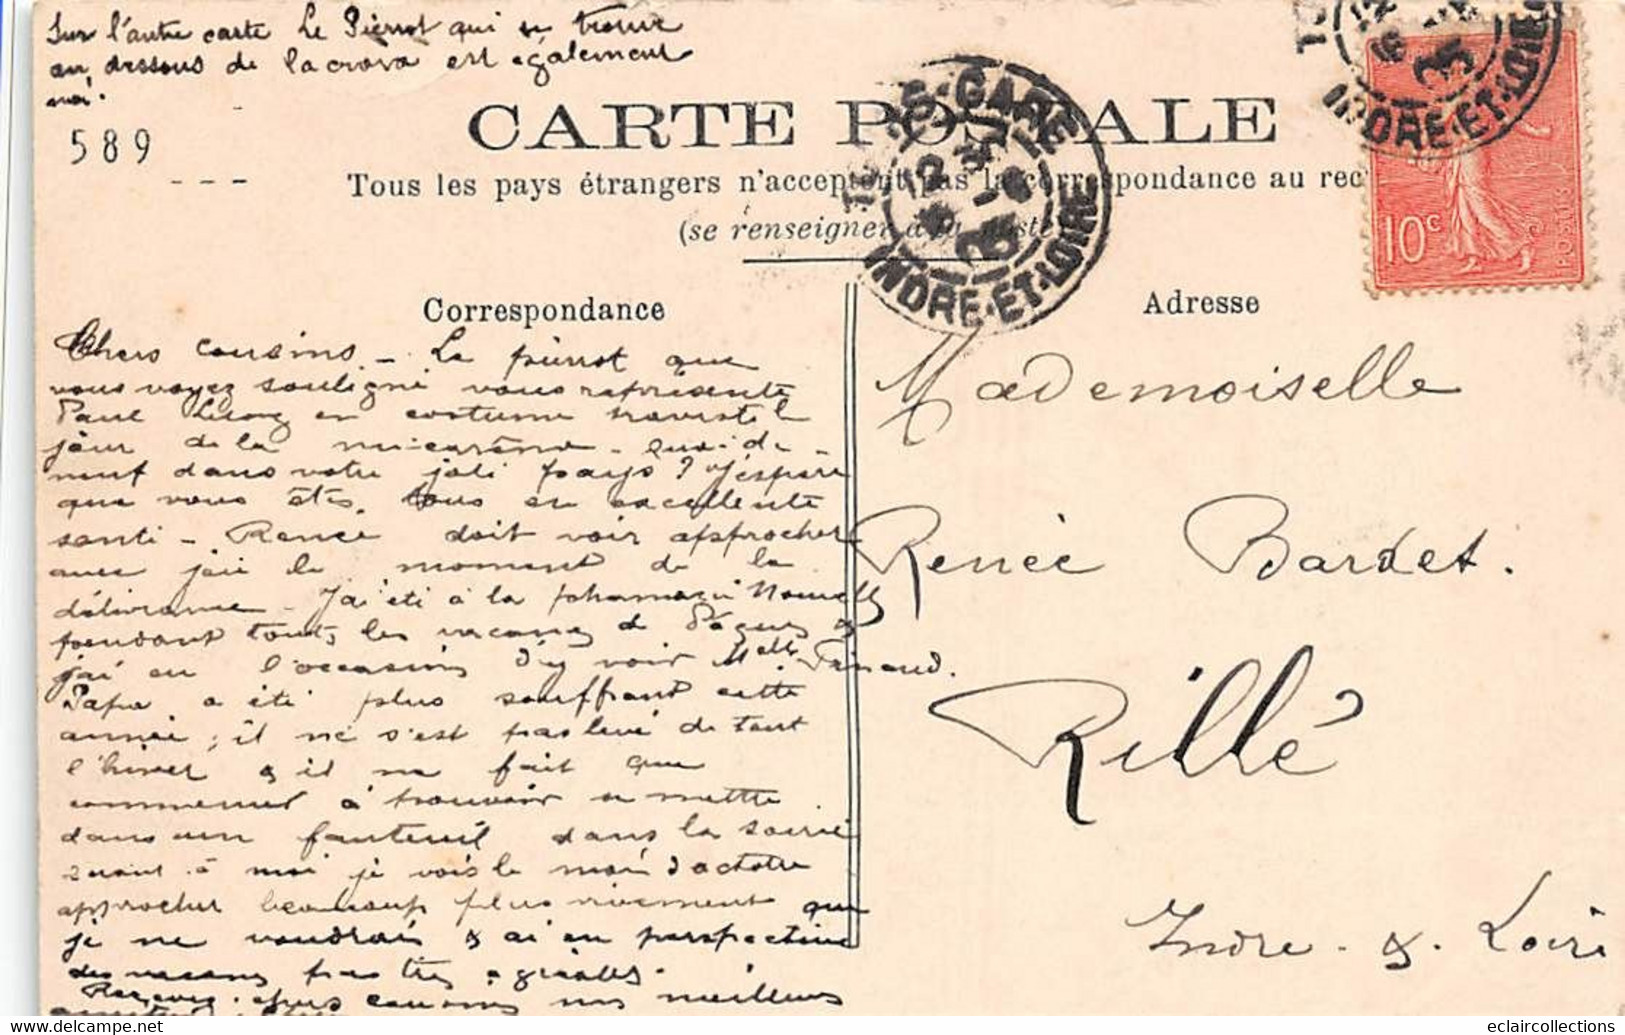 Sur l'autre carte Le Pierrot qui se trouve
au dessous de la croix est également
moi.
589
CARTE POSTALE
Tous les pays étrangers n'acceptent pas la correspondance au rec
(se renseigner à la poste
TOURS-GARE
INDRE-ET-LOIRE
INDRE-ET-LOIRE
10c
POSTES
Correspondance
Adresse
Chers cousins - Le pierrot que
vous voyez souligné vous représente
Paul en costume travesti le
jour de la mi-carême - quoi de
neuf dans votre joli pays ? J'espère
que vous êtes tous en excellente
santé - Renée doit voir approcher
avec joie le moment de la
délivrance - J'ai été à la pharmacie Nouvelle
pendant toutes les vacances de Pâques &
j'ai eu l'occasion d'y voir Melle
Papa a été plus souffrant cette
année ; il ne s'est pas levé de tout
l'hiver & il ne fait que
commencer à pouvoir se mettre
dans un fauteuil dans la soirée
quant à moi je vois le mois d'octobre
approcher beaucoup plus vivement que
je ne voudrais & ai en perspective
des vacances pas très agréables.
Recevez chers cousins nos meilleures
Mademoiselle
Renée Bardet.
Rillé
Indre - & - Loire
eclaircollections